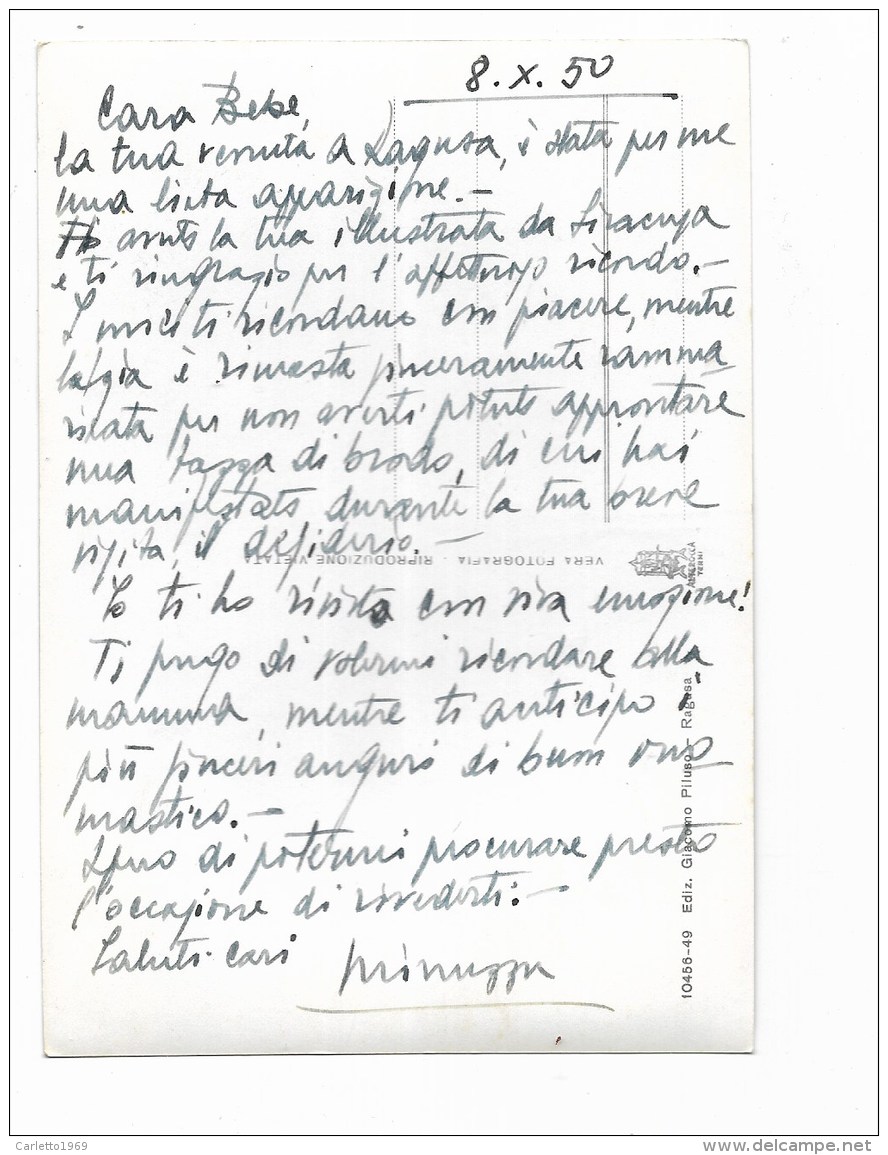 8. X. 50
Cara Bebe,
la tua venuta a Ragusa, è stata per me
una lieta apparizione.-
Ho avuto la tua illustrata da Siracusa
e ti ringrazio per l'affettuoso ricordo.-
I miei ti ricordano con piacere, mentre
la zia è rimasta sinceramente ramma
ricata per non averti potuto approntare
una tazza di brodo, di cui hai
manifestato durante la tua breve
visita, il desiderio.-
Io ti ho rivista con viva emozione!
Ti prego di volermi ricordare alla
mamma, mentre ti anticipo i
più sinceri auguri di buon ono
mastico.-
Spero di potermi procurare presto
l'occasione di rivederti.-
Saluti cari
VERA FOTOGRAFIA - RIPRODUZIONE VIETATA
ALTEROCCA
TERNI
10456-49 Ediz. Giacomo Piluso - Ragusa
Carletto1969
www.delcampe.net